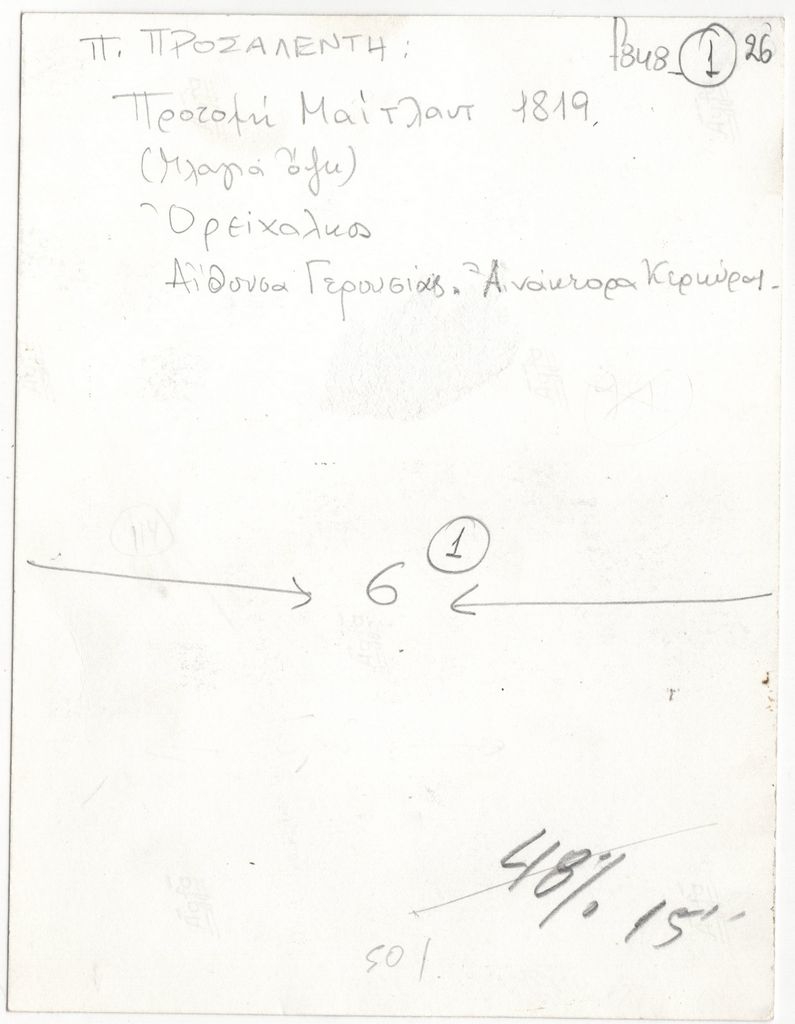 Π. ΠΡΟΣΑΛΕΝΤΗ:
1 26
Προτομή Μαίτλαντ 1819.
(Πλαγιά ὄψη)
Ὀρείχαλκος
Αἴθουσα Γερουσίας. Ἀνάκτορα Κερκύρας.
114
6 1
48% 15''
50 %